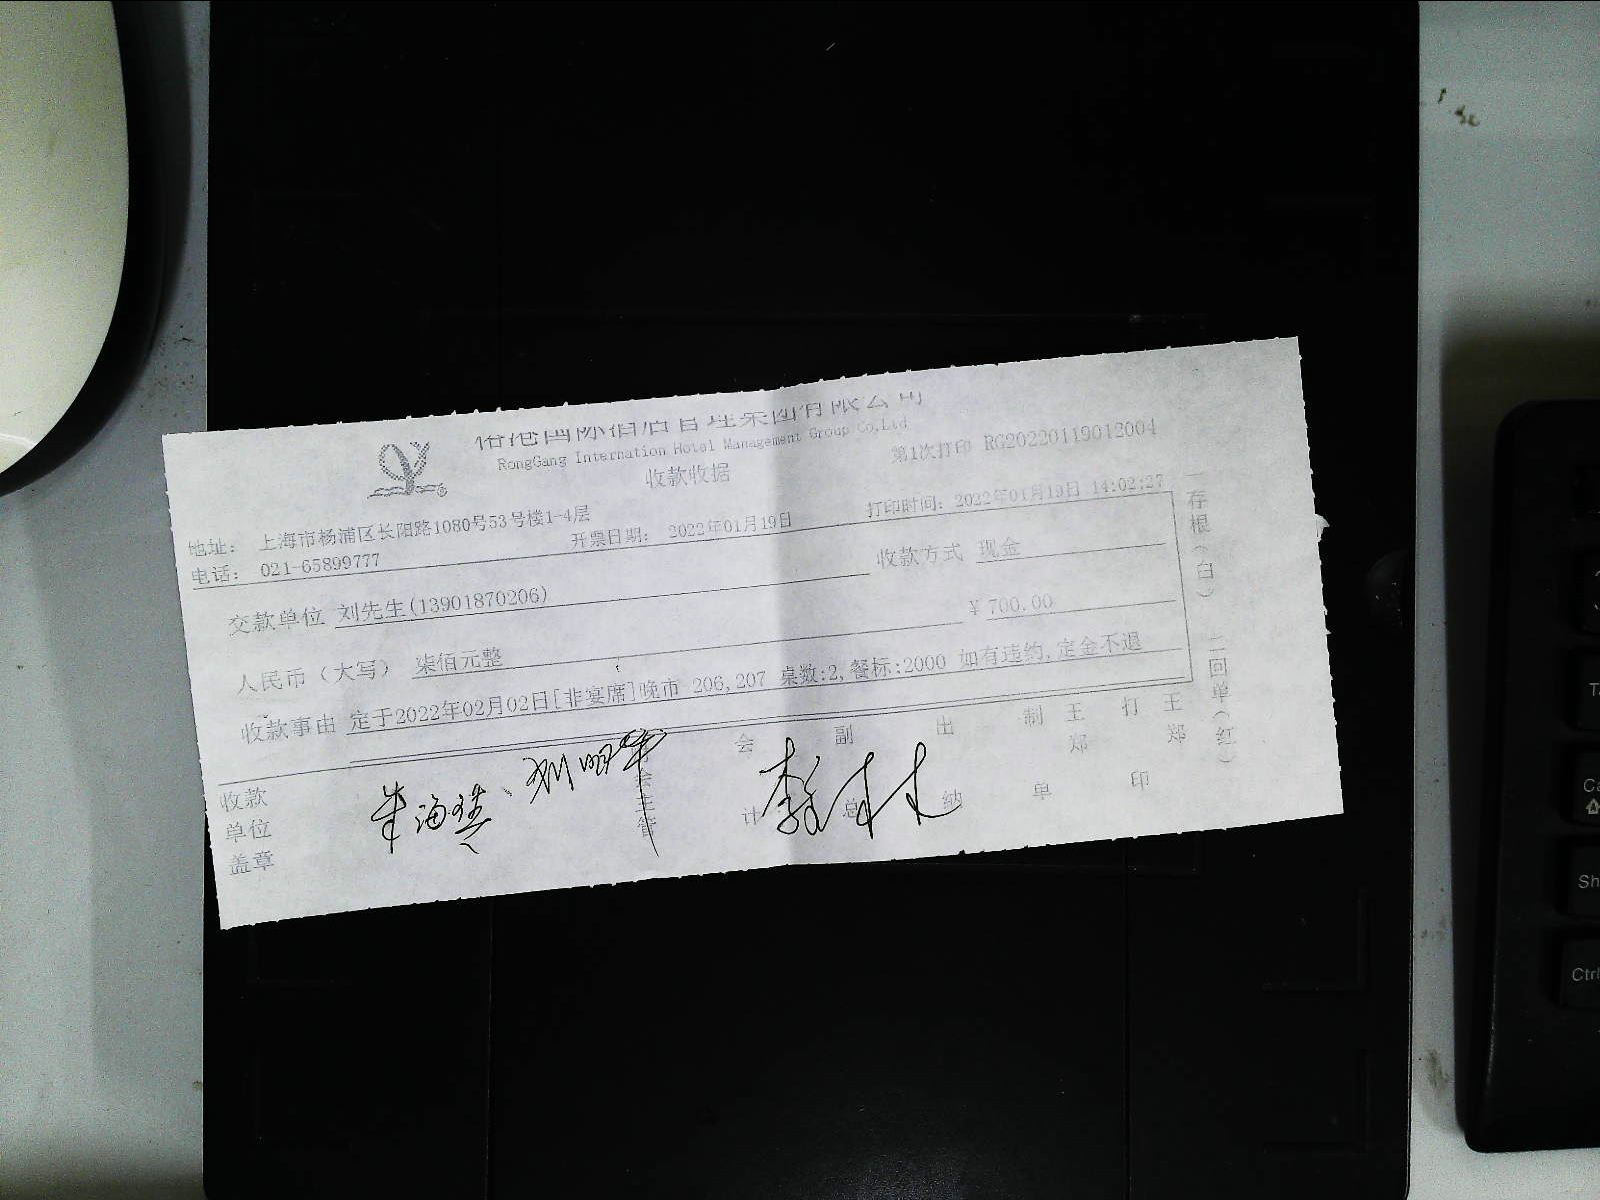 国际酒店管理集团有限公司
RongGang Internation Hotel Management Group Co,Ltd
收款收据
第1次打印 RG20220119012004
地址： 上海市杨浦区长阳路1080号53号楼1-4层
电话： 021-65899777
开票日期： 2022年01月19日
打印时间：2022年01月19日 14:02:27
交款单位 刘先生(13901870206)
收款方式 现金
人民币（大写） 柒佰元整
￥700.00
收款事由 定于2022年02月02日[非宴席]晚市 206,207 桌数:2,餐标:2000 如有违约,定金不退
一存根(白) 二回单(红)
收款单位盖章
会主管
会计
副总
出纳
制单
王郑
打印
王郑
TA
Ca
Sh
Ctrl